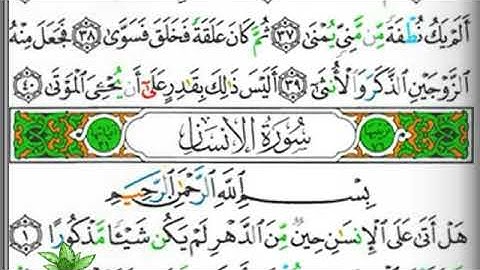 أَلَمْ يَكُ نُطْفَةً مِّن مَّنِيٍّ يُمْنَىٰ ٣٧ ثُمَّ كَانَ عَلَقَةً فَخَلَقَ فَسَوَّىٰ ٣٨ فَجَعَلَ مِنْهُ
الزَّوْجَيْنِ الذَّكَرَ وَالْأُنثَىٰ ٣٩ أَلَيْسَ ذَٰلِكَ بِقَادِرٍ عَلَىٰ أَن يُحْيِيَ الْمَوْتَىٰ ٤٠
سُورَةُ الْإِنسَانِ
بِسْمِ اللَّهِ الرَّحْمَٰنِ الرَّحِيمِ
هَلْ أَتَىٰ عَلَى الْإِنسَانِ حِينٌ مِّنَ الدَّهْرِ لَمْ يَكُن شَيْئًا مَّذْكُورًا ١